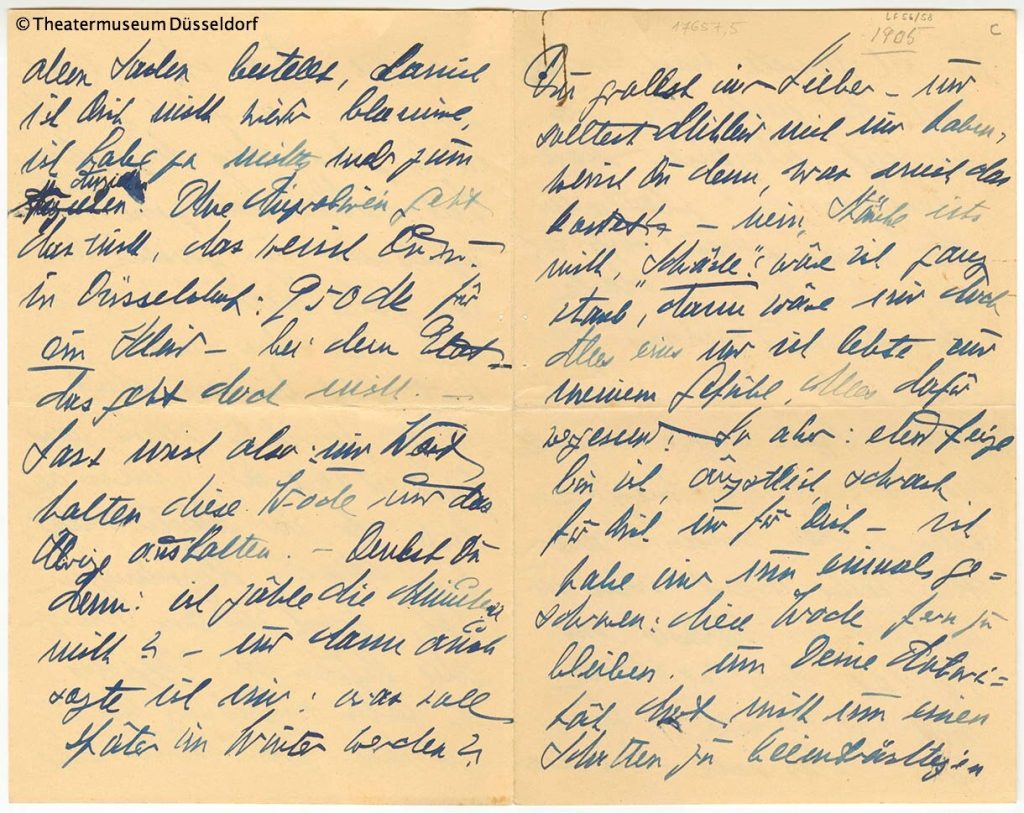 ©Theatermuseum Düsseldorf
allen Sachen bestellt, damit
ich Dich nicht mehr blamire,
ich habe ja nichts mehr zum
Anziehen. Ohne Anprobiren geht
das nicht, das weisst Du –
in Düsseldorf: für
ein Kleid – bei dem Etat –
das geht doch nicht. –
Lass mich also: mir Wort
halten diese Woche und das
Übrige aushalten. – Denkst Du
denn: ich zähle die Minuten
nicht? – und dann auch
sagte ich mir: was soll
später im Winter werden?
17657,5
LF 56/58
1905
c
Du grollst mir Lieber – und
solltest Mitleid mit mir haben,
weisst Du denn, was mich das
kostet – nein, Stärke ists
nicht, wäre ich ganz
stark, dann wäre mir doch
Alles eins und ich lebte nur
meinem Gefühl, Alles dafür
vergessend! So aber: elend feige
bin ich, ängstlich, schwach
für mich und für Dich – ich
habe mir nun einmal ge=
schworen: diese Woche fern zu
bleiben, um Deine Autori=
tät dort nicht um einen
Schatten zu beeinträchtigen